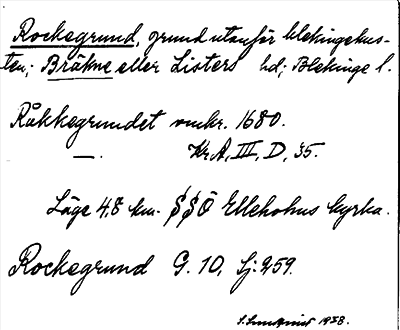 Rockegrund, grund utanför blekingekus-
ten; Bräkne eller Listers hd; Blekinge l.
Råkkegrundet omkr. 1680.
—. Kr.A, III, D, 35.
Läge 4,8 km. SSÖ Elleholms kyrka.
Rockegrund G. 10, Sj: 259.
1938.